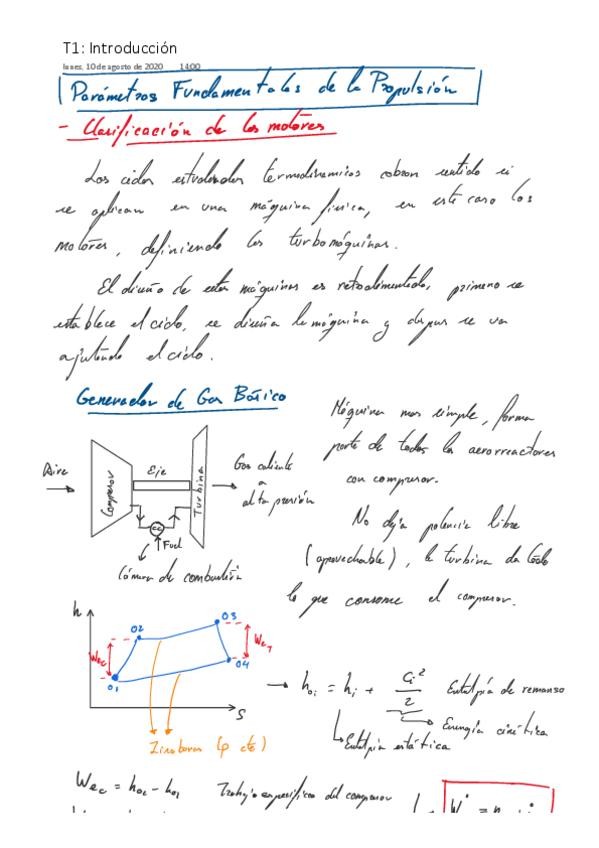 T1: Introducción
lunes, 10 de agosto de 2020 14:00
Parámetros Fundamentales de la Propulsión
- Clasificación de los motores
Los ciclos estudiados termodinámicos cobran sentido si
se aplican en una máquina física, en este caso los
motores, definiendo las turbomáquinas.
El diseño de estas máquinas es retroalimentado, primero se
establece el ciclo, se diseña la máquina y después se va
ajustando el ciclo.
Generador de Gas Básico
Máquina mas simple, forma
parte de todos los aerorreactores
con compresor.
No deja potencia libre
(aprovechable), la turbina da todo
lo que consume el compresor.
Aire
Compresor
Eje
Turbina
Gas caliente
a
alta presión
CC
Fuel
Cámara de combustión
h
02
03
04
01
Wec
WeT
S
Zisobaras (p cte)
→ h₀ᵢ = hᵢ + Cᵢ²/2 Entalpía de remanso
Energía cinética
Entalpía estática
Wec = h₀₂ - h₀₁ Trabajo específico del compresor